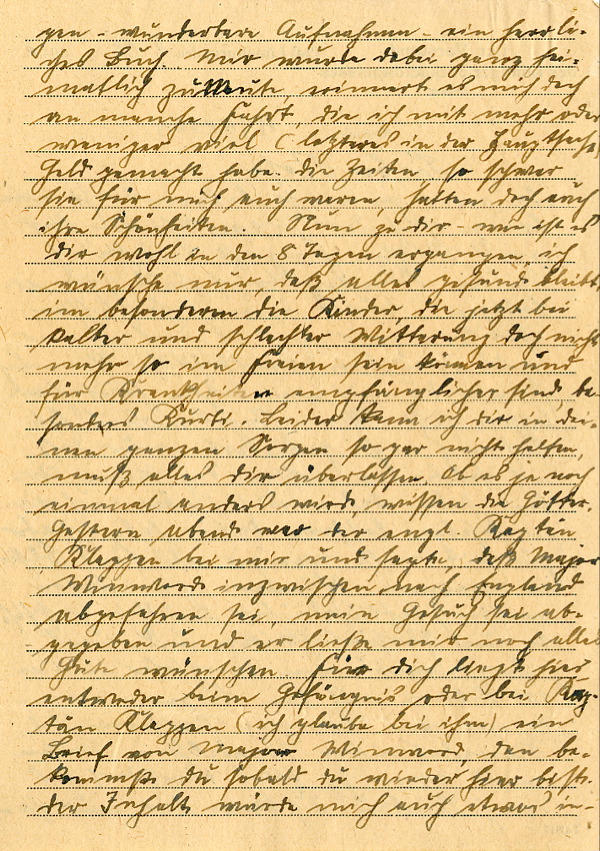 gen - wunderbare Aufnahmen - ein herrli-
ches Buch. Mir wurde dabei ganz hei-
matlich zu Mute, erinnert es mich doch
an manche Fahrt, die ich mit mehr oder
weniger viel (letzteres in der Hauptsache)
Geld gemacht habe. Die Zeiten, so schwer
sie für mich auch waren, hatten doch auch
ihre Schönheiten. Nun zu dir - wie ist es
dir wohl in den 8 Tagen ergangen, ich
wünsche nur, daß alles gesund bleibt,
im besonderen die Kinder, die jetzt bei
kalter und schlechter Witterung doch nicht
mehr so im Freien sein können und
für Krankheiten empfänglicher sind, be-
sonders Kurti. Leider kann ich dir in dei-
nen ganzen Sorgen so gar nicht helfen,
muß alles dir überlassen. Ob es je noch
einmal anders wird, wissen die Götter.
Gestern abend war der engl. Kaptän
Klappen bei mir und sagte, daß Major
Winword inzwischen nach England
abgefahren sei, mein Gesuch sei ab-
gegeben und er ließe mir noch alles
Gute wünschen. Für dich liegt hier
entweder beim Gefängnis oder bei Kap-
tän Klappen (ich glaube bei ihm) ein
Brief von Major Winword, den be-
kommst du sobald du wieder hier bist.
Der Inhalt würde mich auch etwas in-